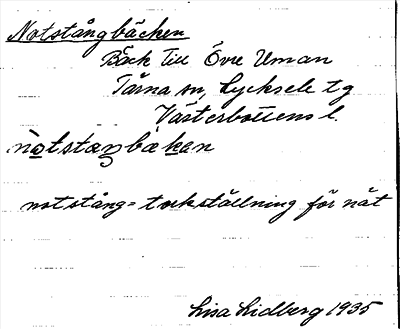 Notstångbäcken
Bäck till Övre Uman
Tärna sn, Lycksele tg
Västerbottens l.
nòtstaŋbäkan
notstång = torkställning för nät
Lisa Lidberg 1935